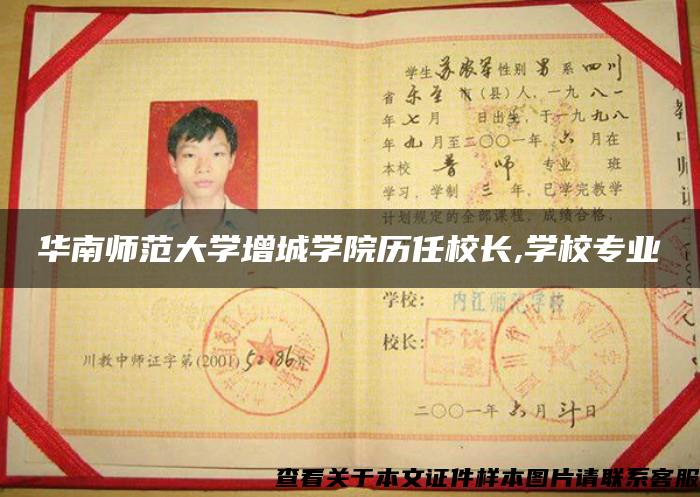 学生 苏农军 性别 男 系 四川
省 乐至 市(县)人，一九八一
年七月 日出生，于一九九八
年九月至二〇〇一年 六 月在
本校 普师 专业 班
学习，学制 三 年，已学完教学
计划规定的全部课程，成绩合格，
华南师范大学增城学院历任校长,学校专业
学校： 内江师范学校
校长：
川教中师证字第(2001)52186号
二〇〇一年 六 月 日
查看关于本文证件样本图片请联系客服